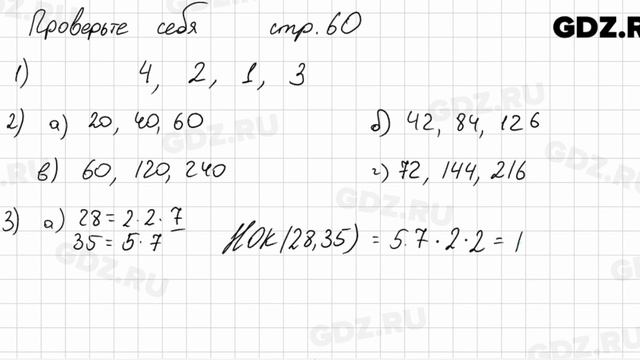 Проверьте себя стр. 60
GDZ.R
1) 4, 2, 1, 3
2) а) 20, 40, 60 б) 42, 84, 126
в) 60, 120, 240 г) 72, 144, 216
3) а) 28 = 2·2·7
35 = 5·7 НОК(28,35) = 5·7·2·2 = 1
GDZ.RU
GDZ.RU
GDZ.RU
GDZ.RU
GDZ.RU
GDZ.RU
GDZ.RU